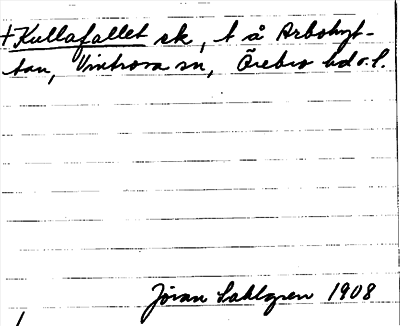 +Kullafallet sk, t å Arbohyt-
tan, Vintrosa sn, Örebro hd o. l.
Jöran Sahlgren 1908